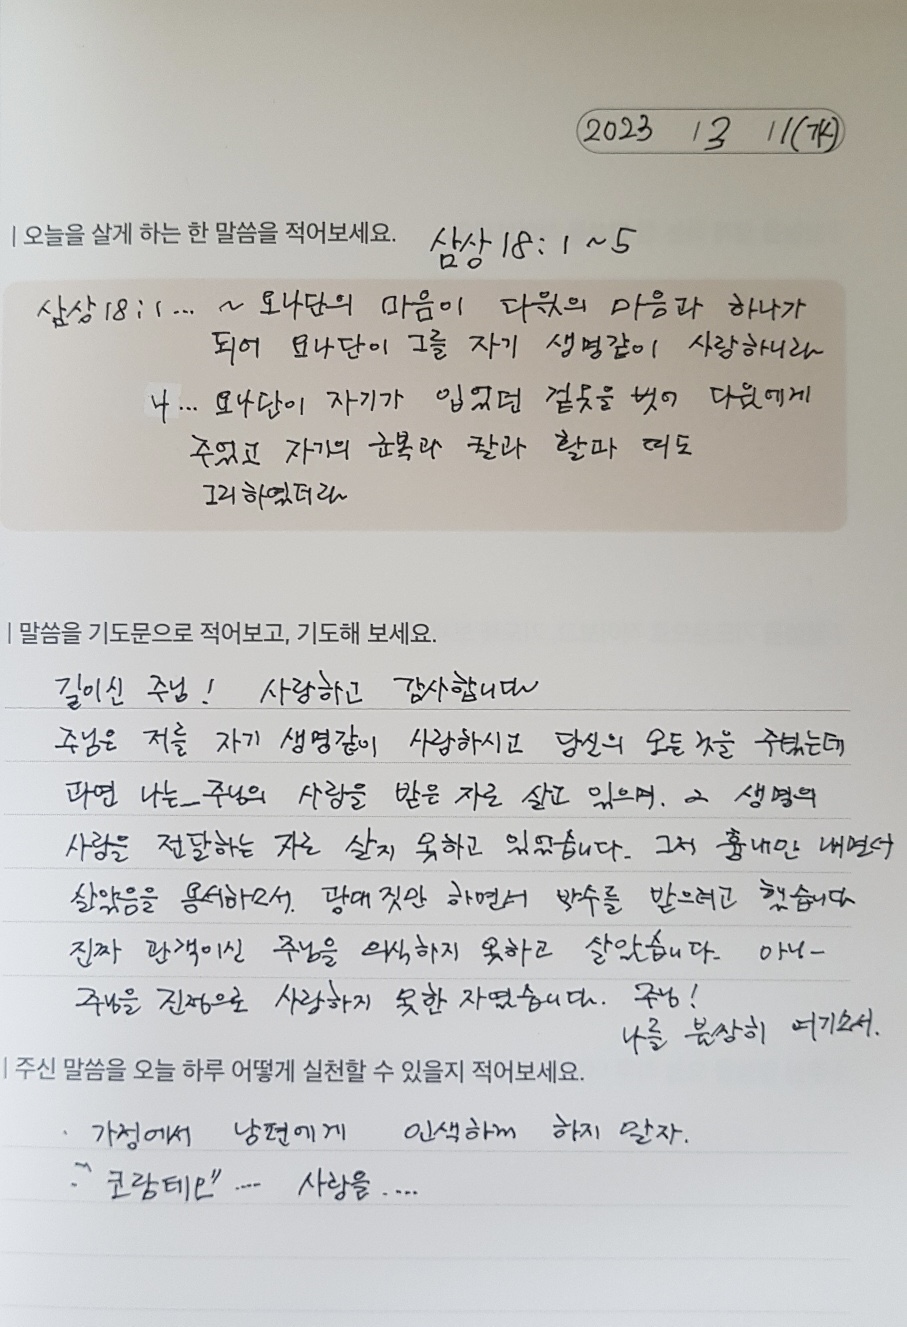 2023 13 11(수)
오늘을 살게 하는 한 말씀을 적어보세요. 삼상 18:1~5
삼상 18:1... ~ 요나단의 마음이 다윗의 마음과 하나가
되어 요나단이 그를 자기 생명같이 사랑하니라
4... 요나단이 자기가 입었던 겉옷을 벗어 다윗에게
주었고 자기의 군복과 칼과 활과 띠도
그리하였더라
말씀을 기도문으로 적어보고, 기도해 보세요.
길이신 주님! 사랑하고 감사합니다
주님은 저를 자기 생명같이 사랑하시고 당신의 모든 것을 주셨는데
과연 나는 주님의 사랑을 받은 자로 살고 있으며, 그 생명의
사랑을 전달하는 자로 살지 못하고 있었습니다. 그저 흉내만 내면서
살았음을 용서하소서. 광대짓만 하면서 박수를 받으려고 했습니다
진짜 관객이신 주님을 의식하지 못하고 살았습니다. 아니-
주님을 진정으로 사랑하지 못한 자였습니다. 주님!
나를 불쌍히 여기소서.
주신 말씀을 오늘 하루 어떻게 실천할 수 있을지 적어보세요.
· 가정에서 남편에게 인색하게 하지 말자.
"코람데오" ... 사랑을 ....